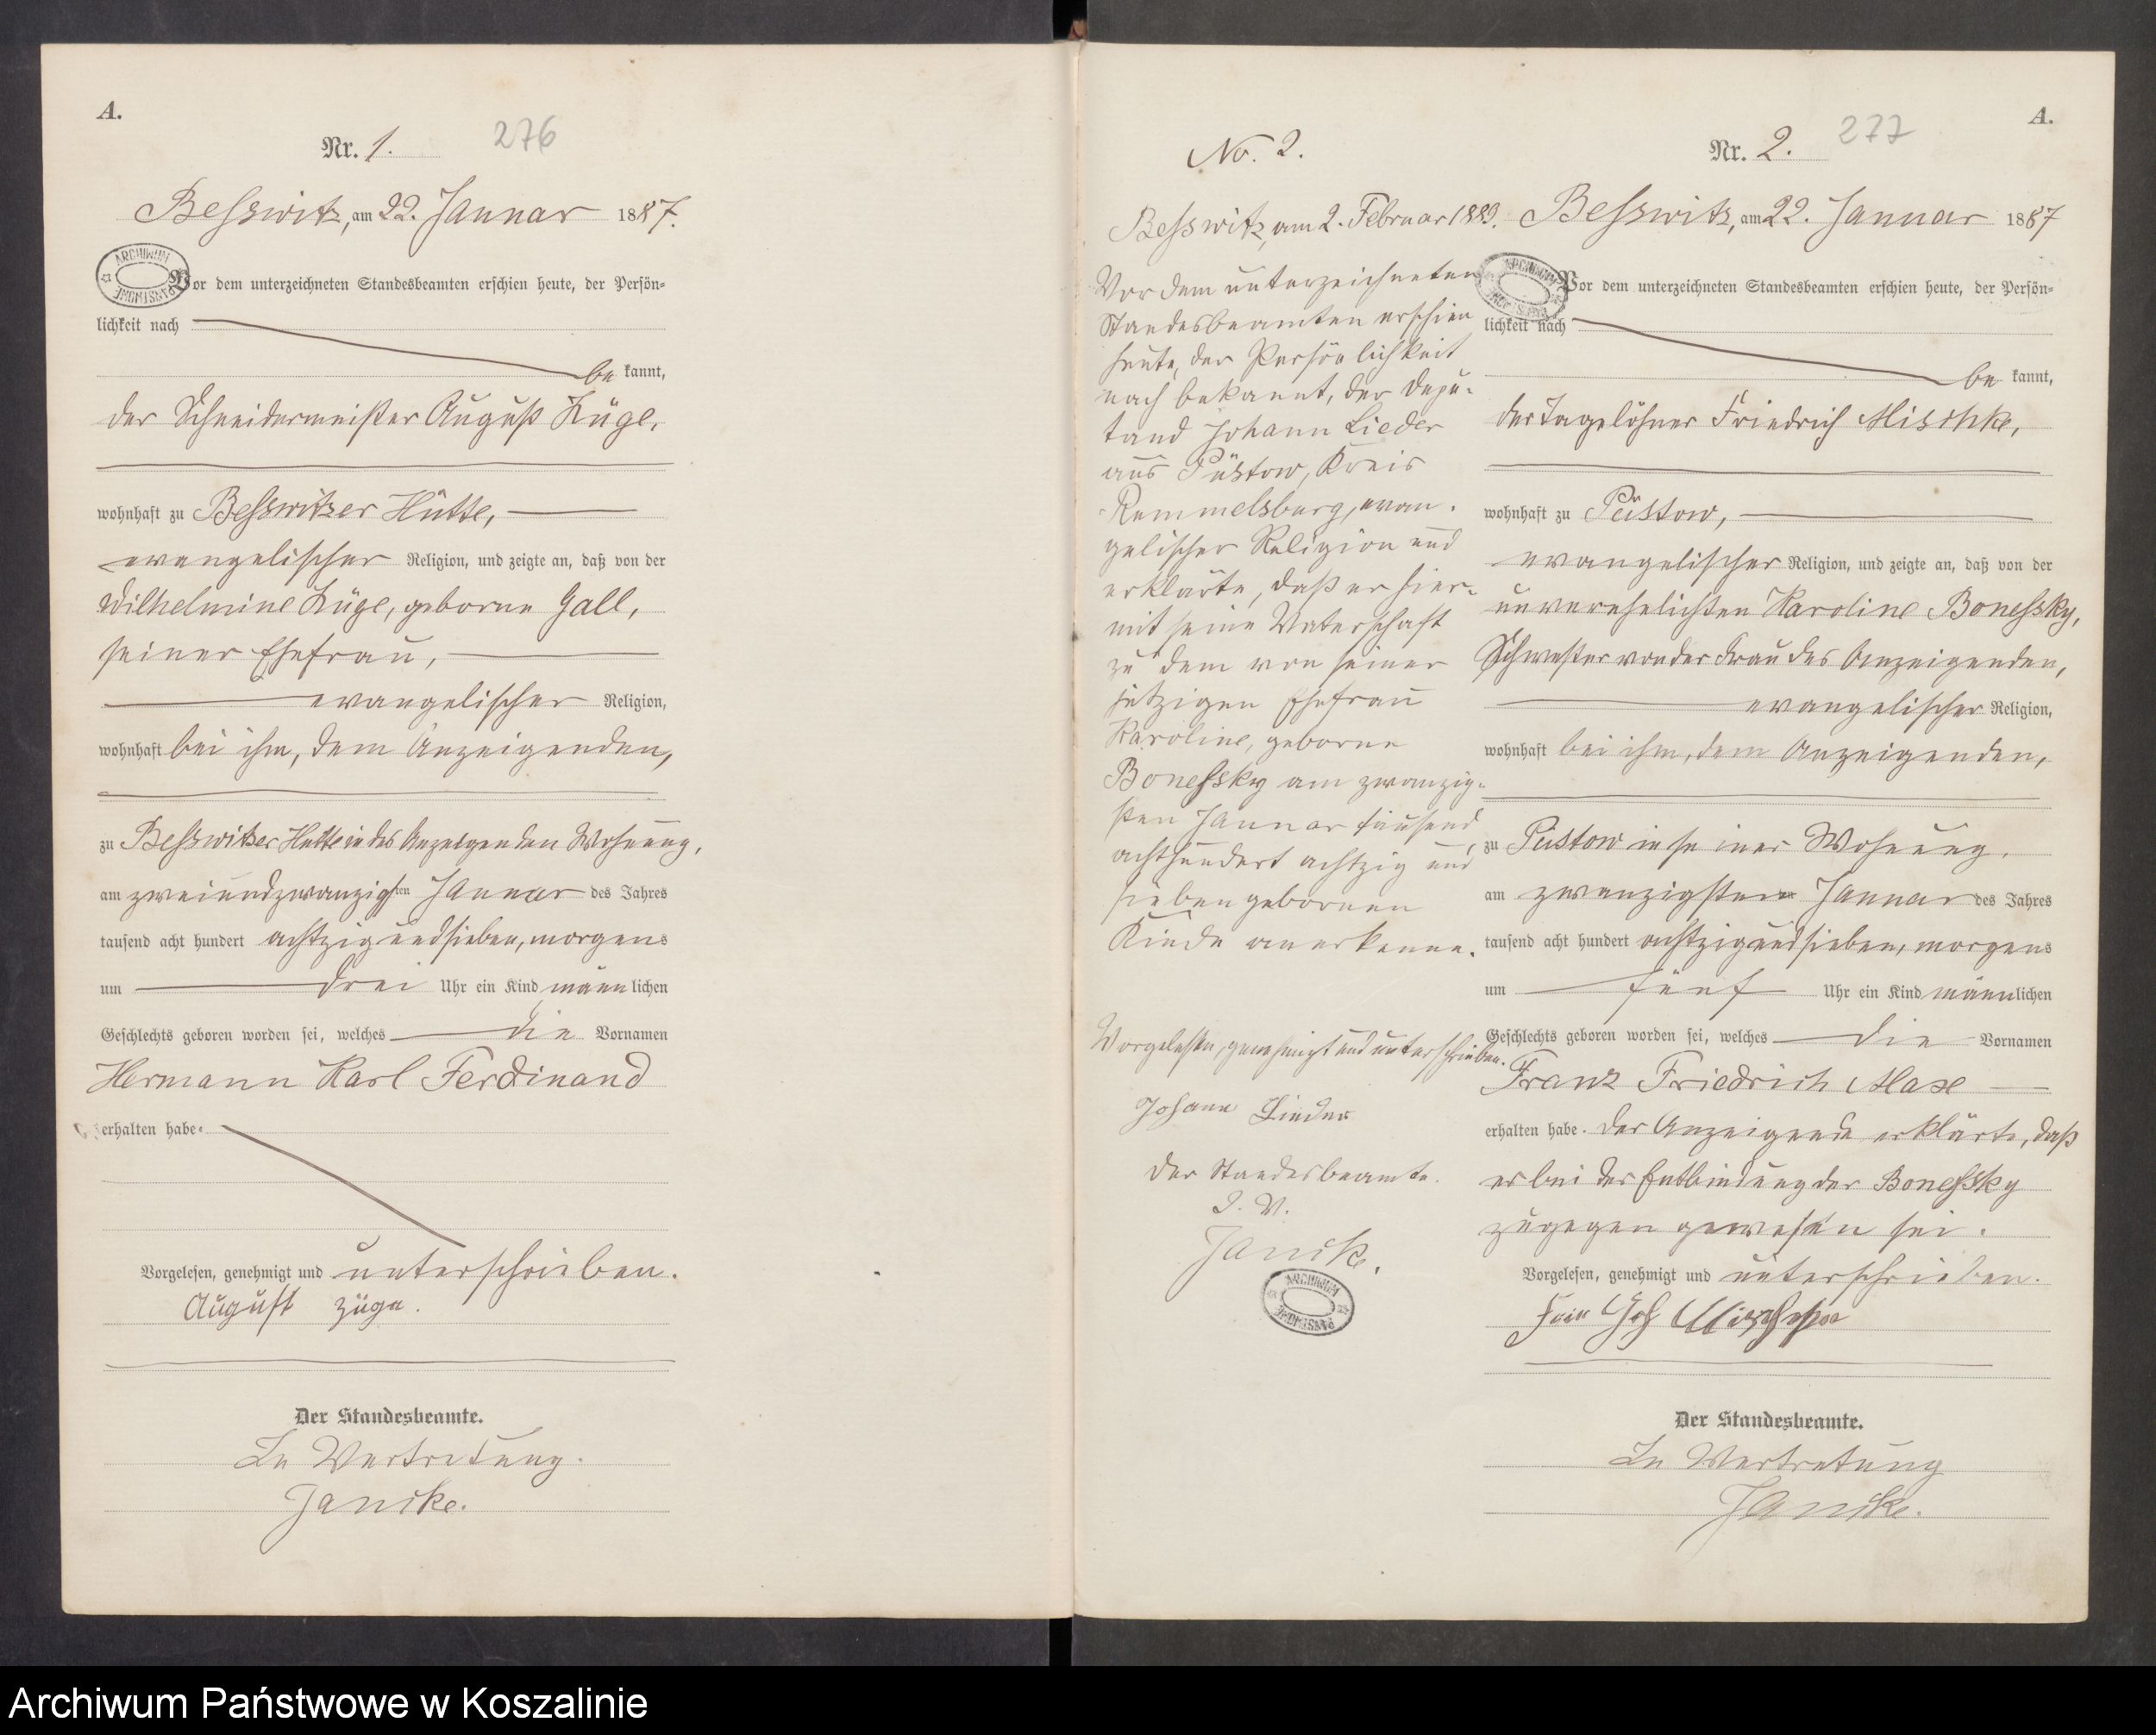 A.
Nr. 1.
276
Besswitz, am 22. Januar 1887.
Vor dem unterzeichneten Standesbeamten erschien heute, der Persön-
lichkeit nach
be kannt,
der Schneidermeister August Züge,
wohnhaft zu Besswitzer Hütte,
evangelischer Religion, und zeigte an, daß von der
Wilhelmine Züge, geborne Gall,
seiner Ehefrau,
evangelischer Religion,
wohnhaft bei ihm, dem Anzeigenden,
zu Besswitzer Hütte in des Anzeigenden Wohnung,
am zweiundzwanzigsten Januar des Jahres
tausend acht hundert achtzig und sieben, morgens
um drei Uhr ein Kind männlichen
Geschlechts geboren worden sei, welches die Vornamen
Hermann Karl Ferdinand
erhalten habe.
Vorgelesen, genehmigt und unterschrieben.
August Züge.
Der Standesbeamte.
In Vertretung.
Janike.
No. 2.
Besswitz, am 2. Februar 1889.
Vor dem unterzeichneten
Standesbeamten erschien
heute, der Persönlichkeit
nach bekannt, der Depu-
tand Johann Lieder
aus Püstow, Kreis
Rummelsburg, evan-
gelischer Religion und
erklärte, daß er hier-
mit seine Vaterschaft
zu dem von seiner
jetzigen Ehefrau
Karoline, geborne
Bonessky am zwanzig-
sten Januar tausend
achthundert achtzig und
sieben gebornen
Kinde anerkenne.
Vorgelesen, genehmigt und unterschrieben.
Johann Lieder
Der Standesbeamte.
I. V.
Janike.
ARCHIWUM PAŃSTWOWE
A.
Nr. 2.
277
Besswitz, am 22. Januar 1887
Vor dem unterzeichneten Standesbeamten erschien heute, der Persön-
lichkeit nach
be kannt,
der Tagelöhner Friedrich Mischke,
wohnhaft zu Püstow,
evangelischer Religion, und zeigte an, daß von der
unverehelichten Karoline Bonessky,
Schwester von der Frau des Anzeigenden,
evangelischer Religion,
wohnhaft bei ihm, dem Anzeigenden,
zu Püstow in seiner Wohnung,
am zwanzigsten Januar des Jahres
tausend acht hundert achtzig und sieben, morgens
um fünf Uhr ein Kind männlichen
Geschlechts geboren worden sei, welches die Vornamen
Franz Friedrich Max
erhalten habe. Der Anzeigende erklärte, daß
er bei der Entbindung der Bonessky
zugegen gewesen sei.
Vorgelesen, genehmigt und unterschrieben.
Der Standesbeamte.
In Vertretung
Janike.
Archiwum Państwowe w Koszalinie